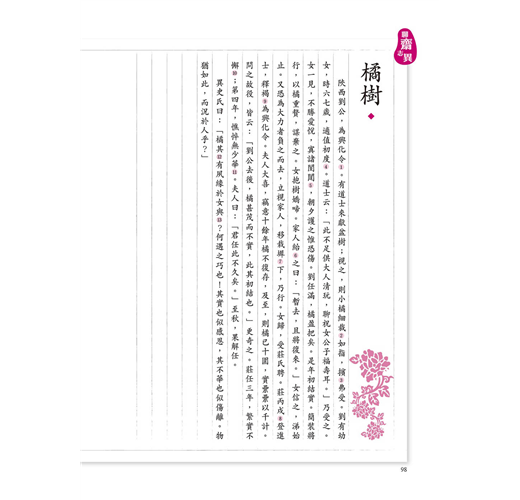 聊齋志異
橘樹
陝西劉公，為興化令①。有道士來獻盆樹；視之，則小橘細裁②如指，擯③弗受。劉有幼
女，時六七歲，適值初度④。道士云：「此不足供大人清玩，聊祝女公子福壽耳。」乃受之。
女一見，不勝愛悅，寘諸閨闥⑤，朝夕護之惟恐傷。劉任滿，橘盈把矣。是年初結實。簡裝將
行，以橘重贅，謀棄之。女抱樹嬌啼。家人紿⑥之曰：「暫去，且將復來。」女信之，涕始
止。又恐為大力者負之而去，立視家人，移栽墀⑦下，乃行。女歸，受莊氏聘。莊丙戌⑧登進
士，釋褐⑨為興化令。夫人大喜，竊意十餘年橘不復存，及至，則橘已十圍，實纍纍以千計。
問之故役，皆云：「劉公去後，橘甚茂而不實，此其初結也。」更奇之。莊任三年，繁實不
懈⑩；第四年，憔悴無少華⑪。夫人曰：「君任此不久矣。」至秋，果解任。
異史氏曰：「橘其⑫有夙緣於女與⑬？何遇之巧也！其實也似感恩，其不華也似傷離。物
猶如此，而況於人乎？」
98